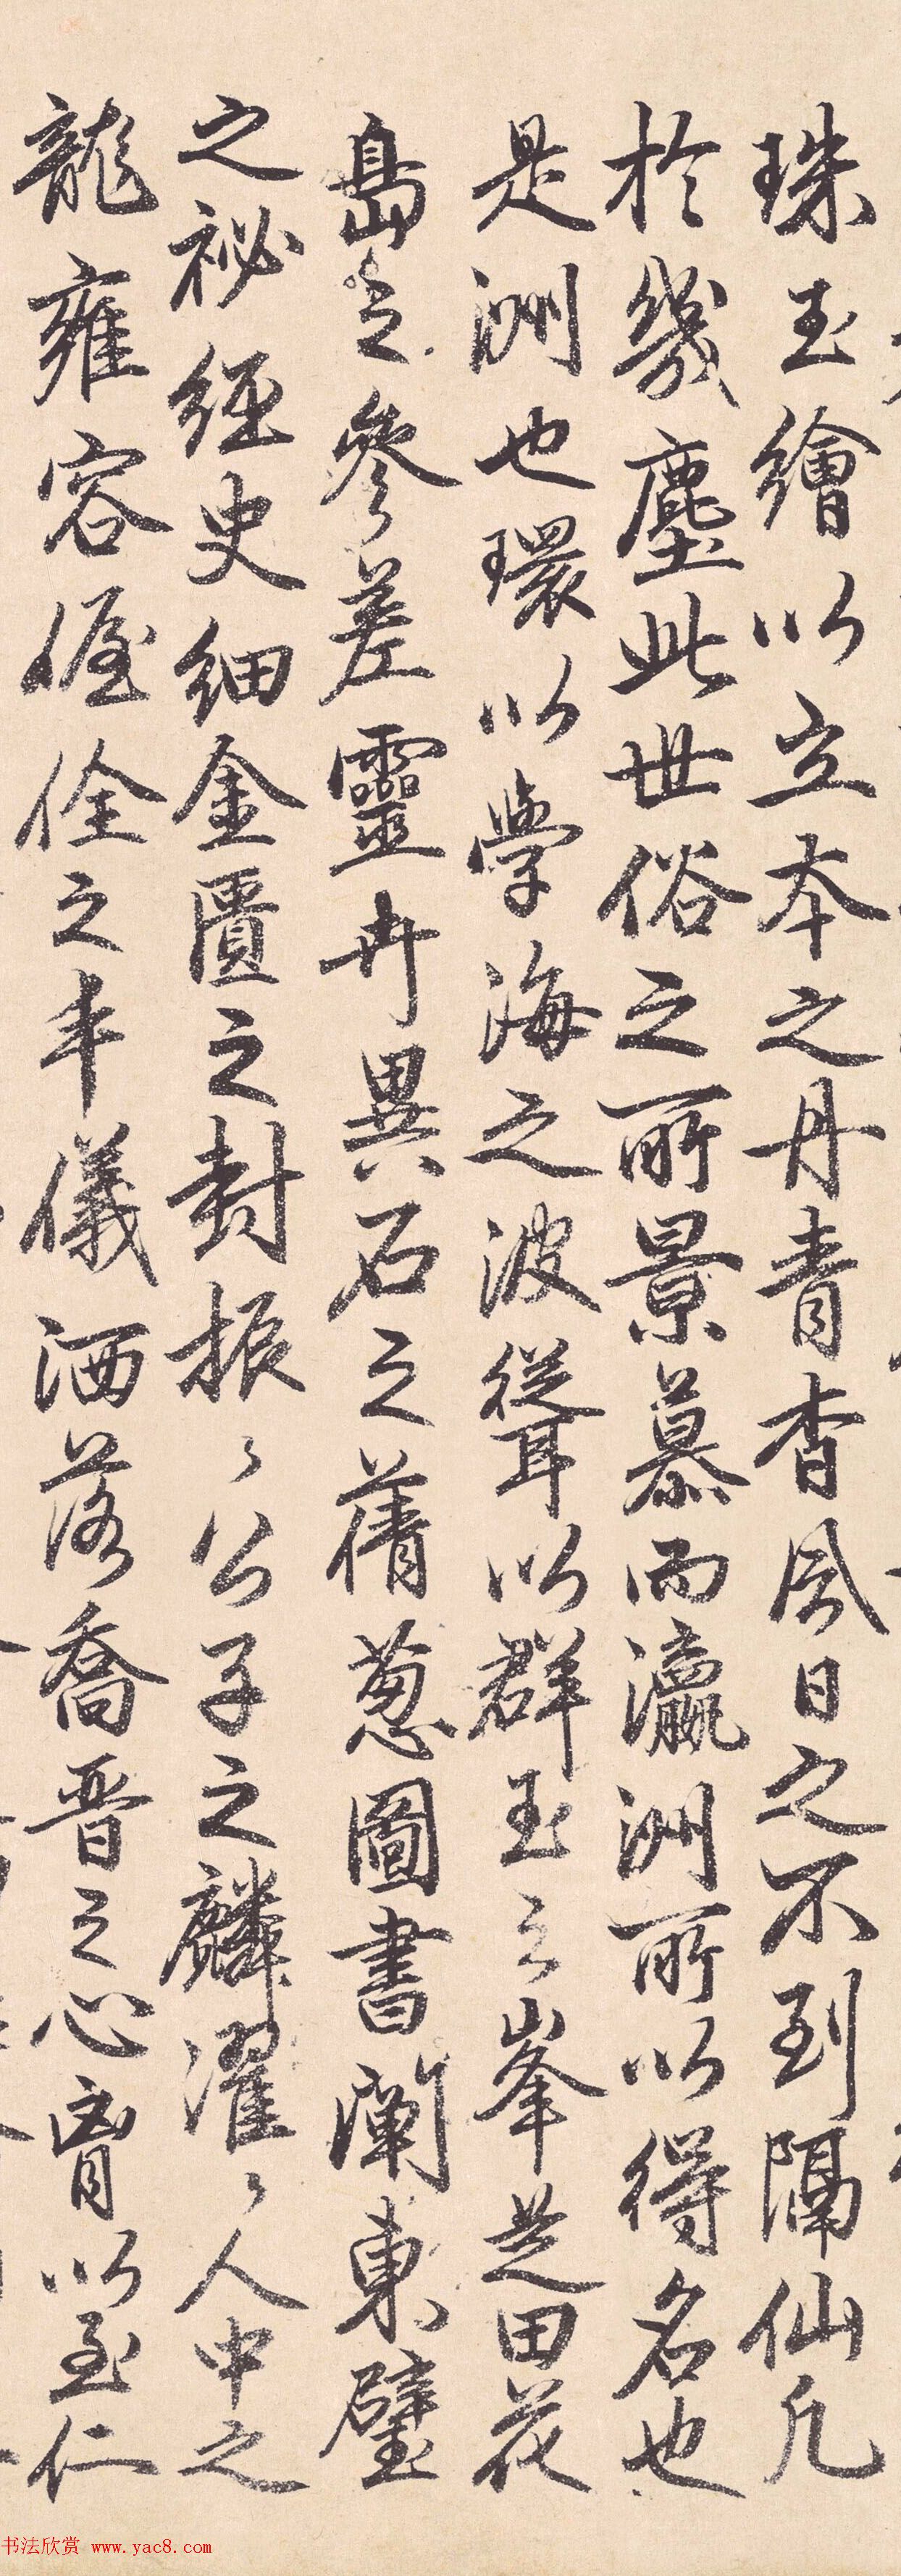 珠玉繪以立本之丹青杳風日之不到隔仙凡
於幾塵此世俗之所景慕而瀛洲所以得名也
是洲也環以學海之波聳以群玉之峯芝田花
島之參差靈卉異石之蒨葱圖書闡東璧
之祕經史細金匱之封振〻公子之麟濯〻人中之
龍雍容偓佺之丰儀洒落喬晉之心胷以至仁
书法欣赏 www.yac8.com